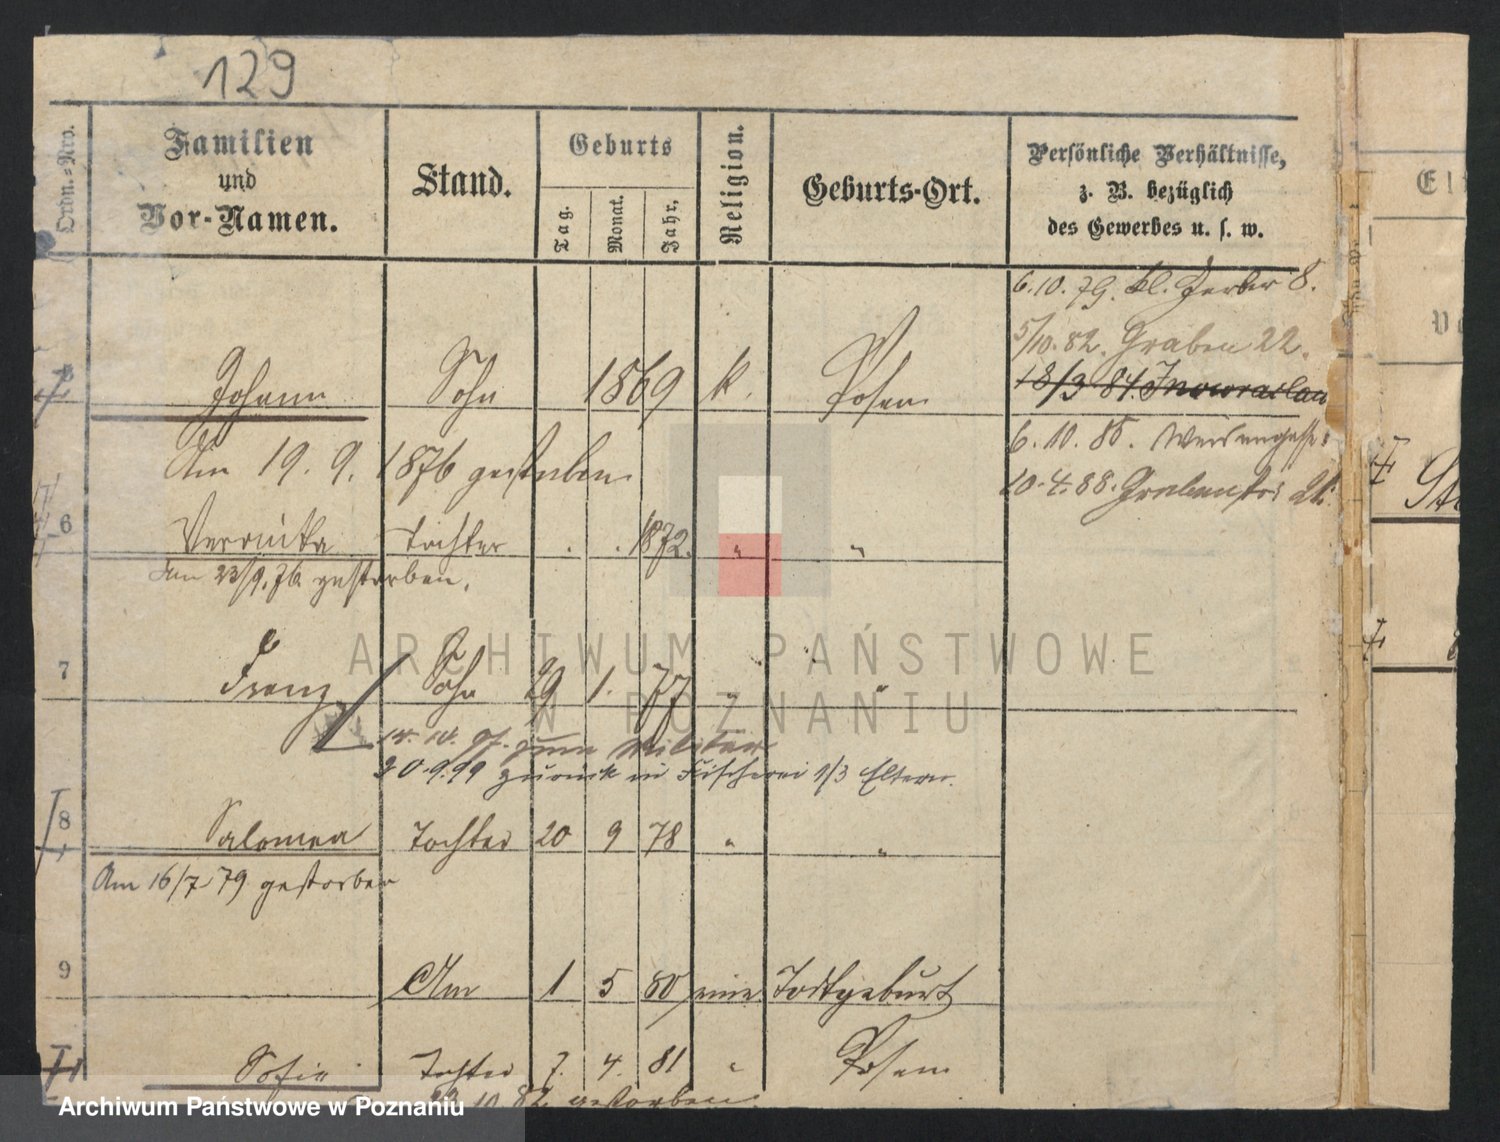 129
Ordn.-Nro.
Familien
und
Vor-Namen.
Stand.
Geburts
Tag.
Monat.
Jahr.
Religion.
Geburts-Ort.
Persönliche Verhältnisse,
z. B. bezüglich
des Gewerbes u. s. w.
6.10.79. Kl. Gerber 8.
5/10.82. Graben 22.
18/3 84. Inowrazlau
Johann Sohn 1869 k. Posen
6.10.85.
Am 19. 9. 1876 gestorben
10.4.88.
6 Veronika Tochter . . 1872. " "
Am 23/9.76 gestorben.
7 Franz Sohn 29 1. 77 " "
zum Militär
20.9.99 zurück in Fischerei 1/3 Eltern.
8 Salomea Tochter 20 9 78 " "
Am 16/7 79 gestorben
9 Am 1 5 80 eine Todtgeburt
Sofie Tochter 7. 4. 81 " Posen
22.10.82 gestorben
ARCHIWUM PAŃSTWOWE
W POZNANIU
Archiwum Państwowe w Poznaniu